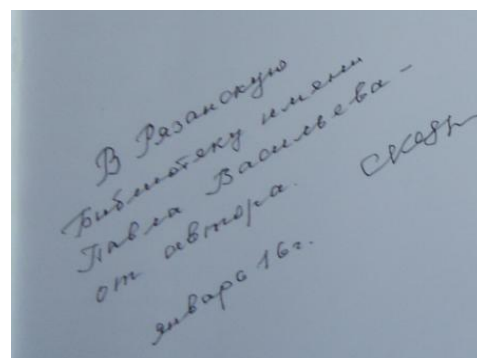 В Рязанскую
Библиотеку имени
Павла Васильева -
от автора.
январь 16г.